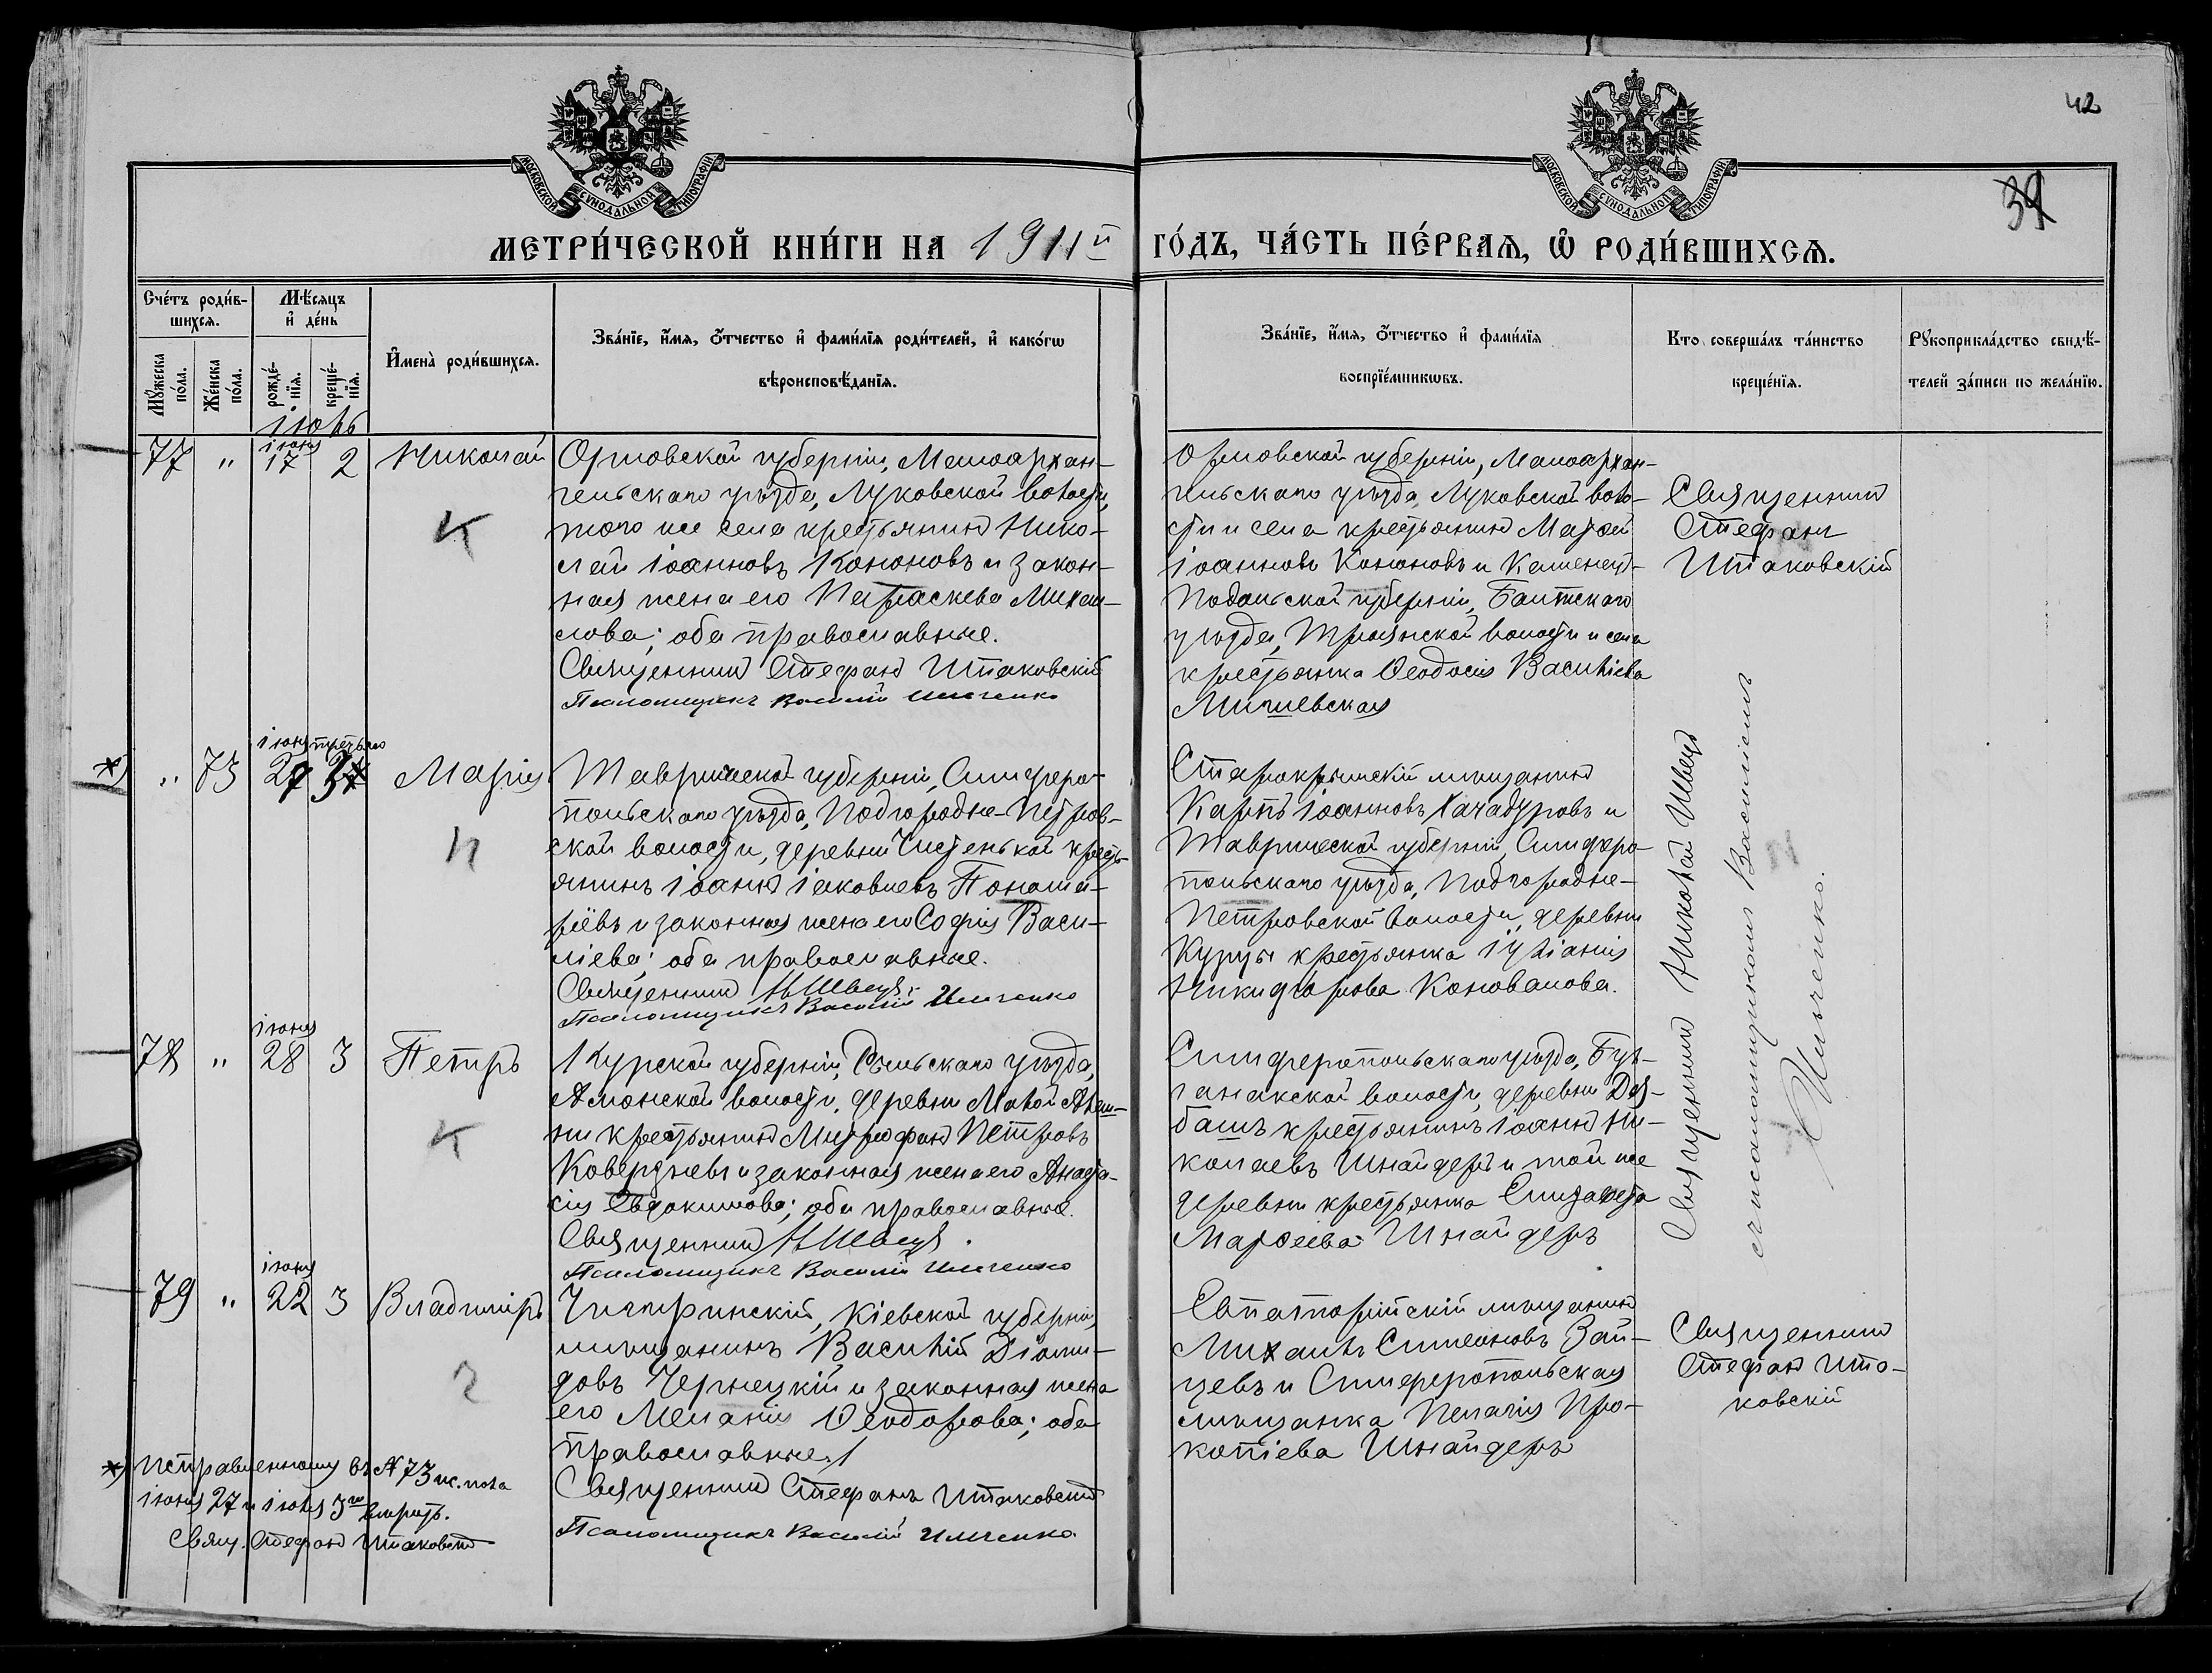 42
39
МОСКОВСКОЙ СѴНОДАЛЬНОЙ ТИПОГРАФІИ
МОСКОВСКОЙ СѴНОДАЛЬНОЙ ТИПОГРАФІИ
МЕТРИ́ЧЕСКОЙ КНИ́ГИ НА 1911й
ГО́ДЪ, ЧА́СТЬ ПЕ́РВАѦ, Ѽ РОДИ́ВШИХСѦ.
Сче́тъ роди́в-
шихсѧ.
Мꙋжеска по́ла.
Же́нска по́ла.
Мѣ́сяцъ
и҆ де́нь
рожде́-
нїѧ.
креще́-
нїѧ.
И҆мена̀ роди́вшихсѧ.
Зва́нїе, и҆́мѧ, ѻ҆́тчество и҆ фами́лїѧ роди́телей, и҆ како́гѡ
вѣроисповѣ́данїѧ.
Зва́нїе, и҆́мѧ, ѻ҆́тчество и҆ фами́лїѧ
воспрїе́мникѡвъ.
Кто̀ соверша́лъ та́инство
креще́нїѧ.
Рꙋкоприкла́дство свидѣ́-
телей за́писи по жела́нїю.
іюль
77 " іюня 17 2 Николай
Орловской губерніи, Малоархан-
гельскаго уѣзда, Луковской волости,
того же села крестьянинъ Нико-
лай Іоанновъ Кононовъ и закон-
ная жена его Параскева Михаи-
лова; оба православные.
Священникъ Стефанъ Итаковскій
Псаломщикъ Василій Ильченко
Орловской губерніи, Малоархан-
гельскаго уѣзда, Луковской воло-
сти и села крестьянинъ Матѳей
Іоанновъ Кононовъ и Каменецъ-
Подольской губерніи, Балтскаго
уѣзда, Троянской волости и села
крестьянка Ѳеодосія Васильева
Мишевская
Священникъ
Стефанъ
Итаковскій
К
*) " 73 іюня 27 третьяго 3 Марія
Таврической губерніи, Симферо-
польскаго уѣзда, Подгородне-Петров-
ской волости, деревни Чистенькой кресть-
янинъ Іоаннъ Іаковлевъ Понома-
рёвъ и законная жена его Софія Васи-
ліева; оба православные.
Священникъ Н. Швецъ
Псаломщикъ Василій Ильченко
Старокрымскій мѣщанинъ
Карпъ Іоанновъ Хачадуровъ и
Таврической губерніи, Симферо-
польскаго уѣзда, Подгородне-
Петровской волости, деревни
Курцы крестьянка Іуліанія
Никифорова Коновалова.
П
78 " іюня 28 3 Петръ
Курской губерніи, Рыльскаго уѣзда,
Амонской волости, деревни Малой Алеш-
ни крестьянинъ Митрофанъ Петровъ
Коверзневъ и законная жена его Анаста-
сія Евдокимова; оба православные.
Священникъ Н. Швецъ.
Псаломщикъ Василій Ильченко
Симферопольскаго уѣзда, Бул-
ганакской волости, деревни Джа-
башъ крестьянинъ Іоаннъ Ни-
колаевъ Шнайдеръ и той же
деревни крестьянка Елизавета
Матѳеева Шнайдеръ
К
Священникъ Николай Швецъ
съ псаломщикомъ Василіемъ
Ильченко.
79 " іюня 22 3 Владиміръ
Чигиринскій, Кіевской губерніи,
мѣщанинъ Василій Діоми-
довъ Чернецкій и законная жена
его Меланія Ѳеодорова; оба
православные.
Священникъ Стефанъ Итаковскій
Псаломщикъ Василій Ильченко
Евпаторійскій мѣщанинъ
Михаилъ Симеоновъ Зай-
цевъ и Симферопольская
мѣщанка Пелагія Про-
копіева Шнайдеръ
Священникъ
Стефанъ Ита-
ковскій
*) Исправленному въ № 73 ж. пола
іюня 27 и іюля 3го вѣрить.
Свящ. Стефанъ Итаковскій